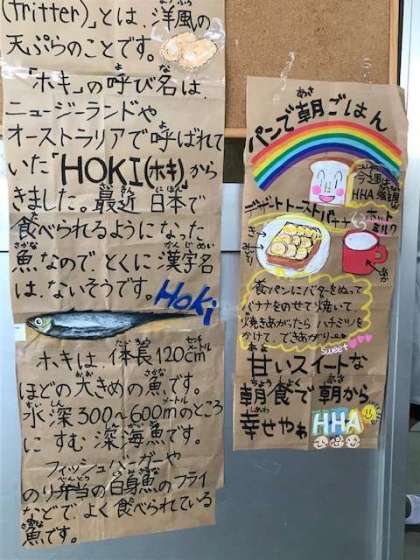 (fritter)」とは、洋風の
天ぷらのことです。
「ホキ」の呼び名は、
ニュージーランドや
オーストラリアで呼ばれて
いた「HOKI(ホキ)」から
きました。最近 日本で
食べられるようになった
魚なので、とくに漢字名
は、ないそうです。
Hoki
ホキは、体長120cm
ほどの大きめの魚です。
水深300~600mのところ
にすむ深海魚です。
フィッシュバーガーや
のり弁当の白身魚のフライ
などで、よく食べられている
魚です。
パンで朝ごはん
今週
HHA
デザートトーストバナナ
ホット
ミルク
食パンにバターをぬって
バナナをのせて焼いて
焼きあがったら ハチミツを
かけて、できあがり
sweet
甘いスイートな
朝食で朝から
幸せやね
HHA